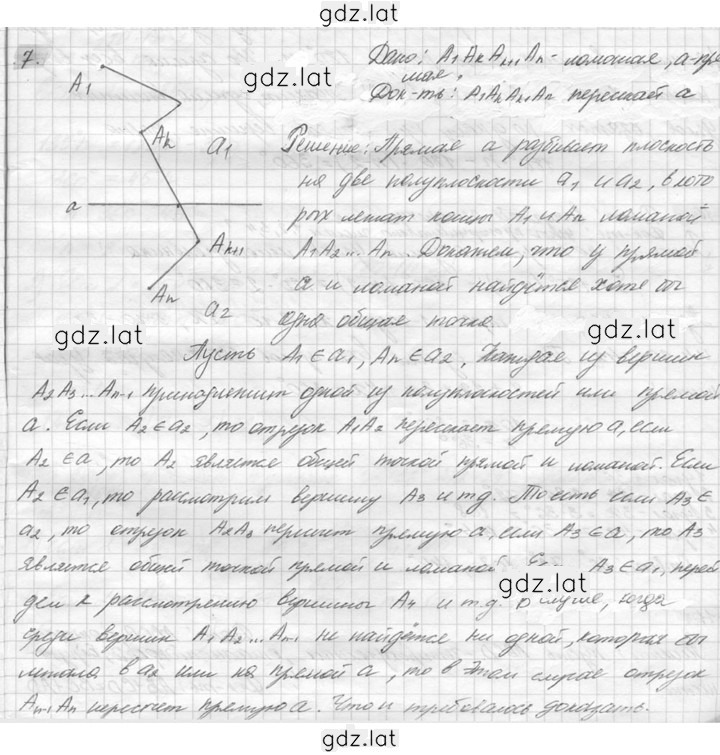 gdz.lat
7.
Дано: A1AkAk+1An - ломаная, a-пря
мая.
Док-ть: A1AkAk+1An пересекает a
gdz.lat
A1
Ak
a1
a
Ak+1
An
a2
Решение: Прямая a разбивает плоскость
на две полуплоскости a1 и a2, в кото
рых лежат концы A1 и An ломаной
A1A2...An. Докажем, что у прямой
a и ломаной найдётся хоте бы
одна общая точка.
gdz.lat
gdz.lat
Пусть A1∈a1, An∈a2. Каждая из вершин
A2A3...An-1 принадлежит одной из полуплоскостей или прямой
a. Если A2∈a2, то отрезок A1A2 пересекает прямую a, если
A2∈a, то A2 является общей точкой прямой и ломаной. Если
A2∈a1, то рассмотрим вершину A3 и тд. То есть если A3∈
a2, то отрезок A2A3 прямую a, если A3∈a, то A3
является общей точкой прямой и ломаной. A3∈a1, перей
gdz.lat
дем к рассмотрению вершины A4 и т.д. В случае, когда
среди вершин A1A2...An-1 не найдётся ни одной, которая бы
лежала в a2 или на прямой a, то в этом случае отрезок
An-1An пересечет прямую a. Что и требовалось доказать.
gdz.lat